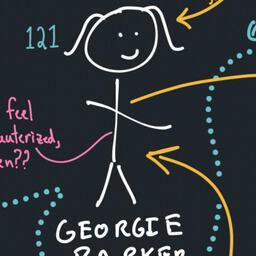 121
feel
auterized,
en??
GEORGIE